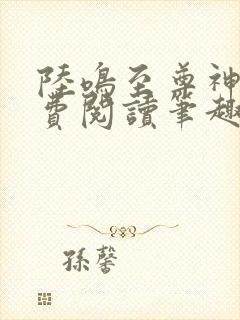 陸鳴至尊神
費閱讀筆趣
孫馨